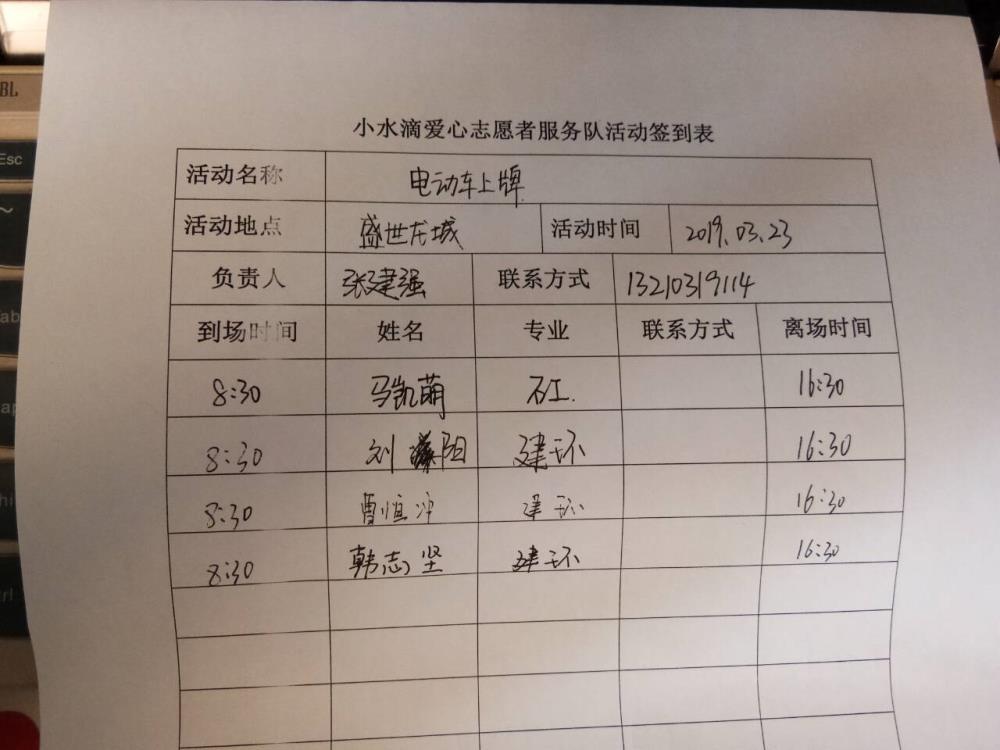 BL
Esc
~
小水滴爱心志愿者服务队活动签到表
活动名称 电动车上牌
活动地点 盛世龙城 活动时间 2019.03.23
负责人 张建强 联系方式 13210319114
到场时间 姓名 专业 联系方式 离场时间
8:30 马凯萌 石工. 16:30
8:30 刘 阳 建环 16:30
8:30 曹恒冲 建环 16:30
8:30 韩志坚 建环 16:30